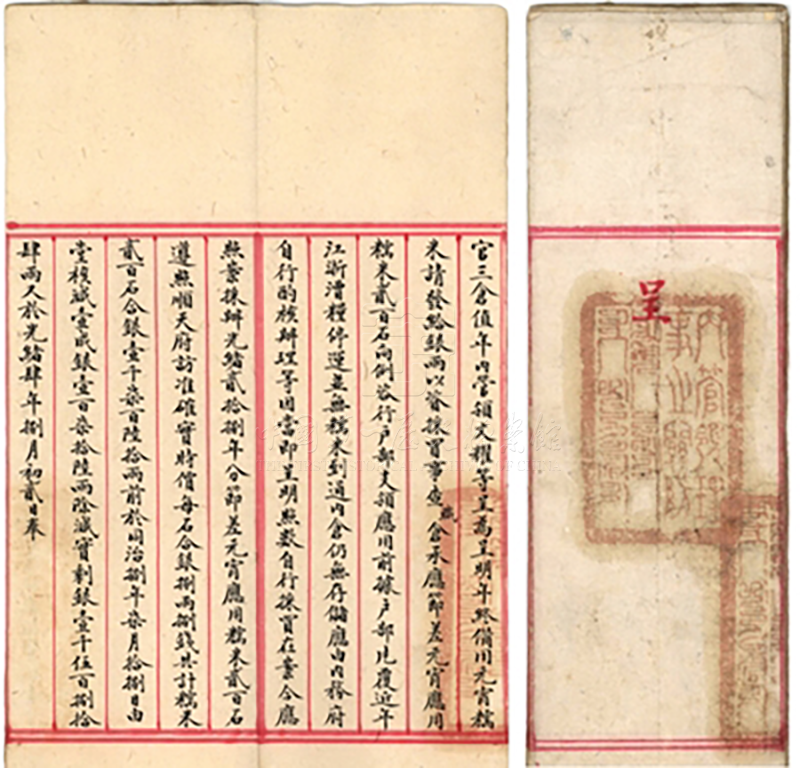 呈
內管領
事之關防
官三倉值年內管領文耀等呈為呈明年終備用元宵糯
米請發給銀兩以資採買事竊職倉承應節差元宵應用
糯米貳百石向例咨行戶部支領應用前據戶部片覆近年
江浙漕糧停運並無糯米到通內倉仍無存儲應由內務府
自行酌核辦理等因當即呈明照數自行採買在案今應
照案採辦光緒貳拾捌年分節差元宵應用糯米貳百石
遵照順天府訪准確實時價每石合銀捌兩捌錢共計糯米
貳百石合銀壹千柒百陸拾兩前於同治捌年柒月拾捌日由
堂核減壹成銀壹百柒拾陸兩除減實剩銀壹千伍百捌拾
肆兩又於光緒肆年捌月初貳日奉